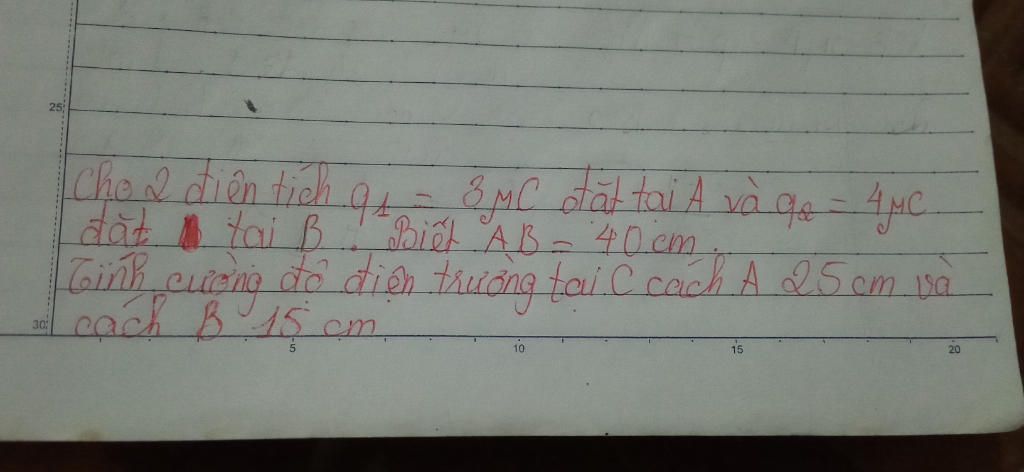 25
Cho 2 điện tích q1 = 3μC đặt tại A và q2 = 4μC
đặt tại B. Biết AB = 40 cm.
Tính cường độ điện trường tại C cách A 25 cm và
cách B 15 cm
30
5 10 15 20